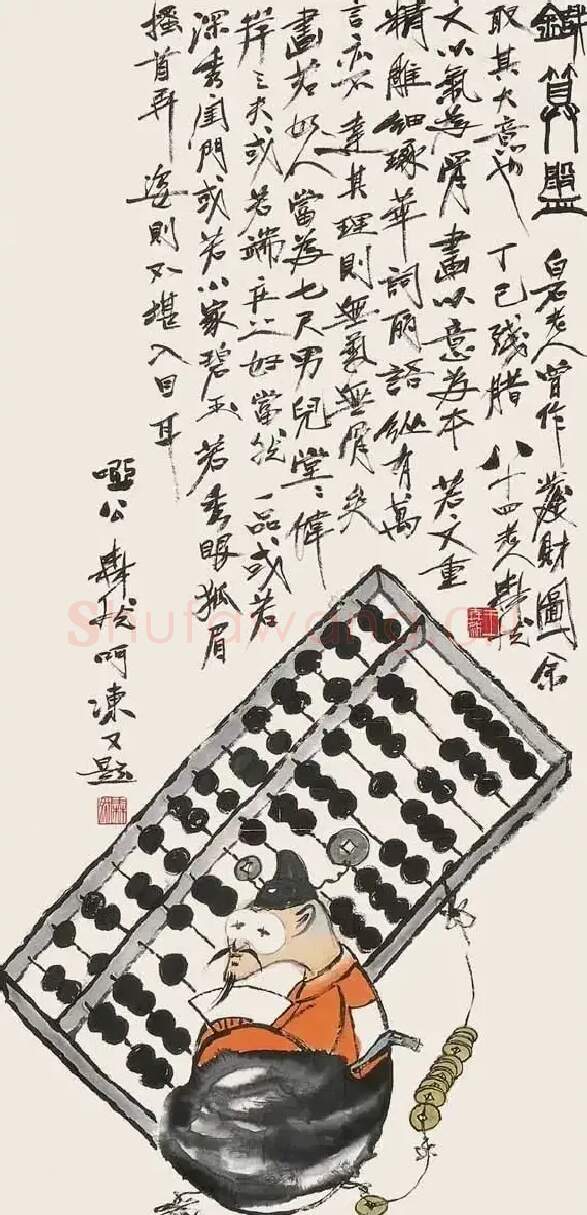 鐵算盤 白石老人曾作發財圖余
取其大意也 丁巳殘腊 八十四老人森然
文以氣為骨畫以意為本若文重
精雕細琢華詞麗語縱有萬
言亦不達其理則無氣無骨矣
畫若如人當為七尺男兒堂〻偉
岸之夫或若端立之好當然一品或若
深秀閨門或若小家碧玉若秀眼狐眉
搔首弄姿則不堪入目耳
啞公森然呵凍又題
Shufawang.cn